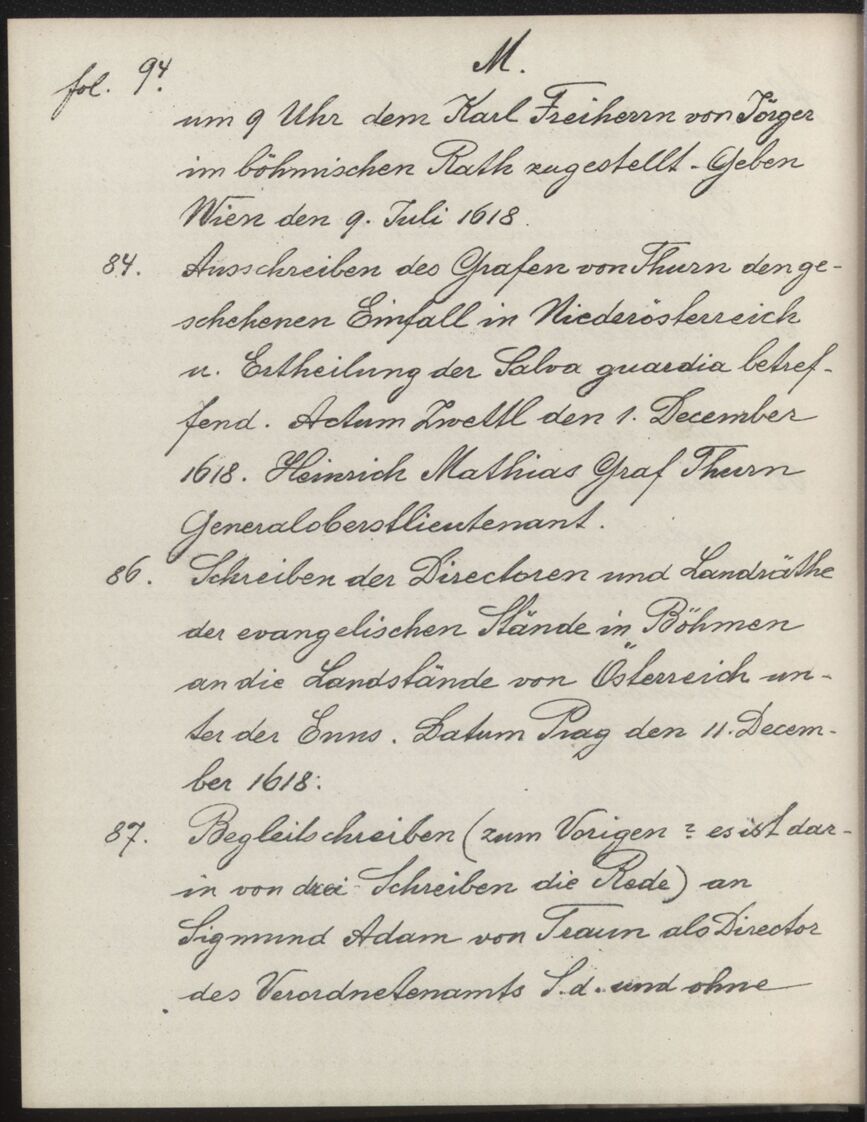 M.
fol. 94.
um 9 Uhr dem Karl Freiherrn von Jörger
im böhmischen Rath zugestellt - Geben
Wien den 9. Juli 1618.
84. Ausschreiben des Grafen von Thurn den ge-
schehenen Einfall in Niederösterreich
u. Ertheilung der Salva guardia betref-
fend. Actum Zwettl den 1. December
1618. Heinrich Mathias Graf Thurn
Generaloberstlieutenant.
86. Schreiben der Directoren und Landräthe
der evangelischen Stände in Böhmen
an die Landstände von Österreich un-
ter der Enns. Datum Prag den 11. Decem-
ber 1618.
87. Begleitschreiben (zum Vorigen ? es ist dar-
in von drei Schreiben die Rede) an
Sigmund Adam von Traun als Director
des Verordnetenamts S. d. und ohne